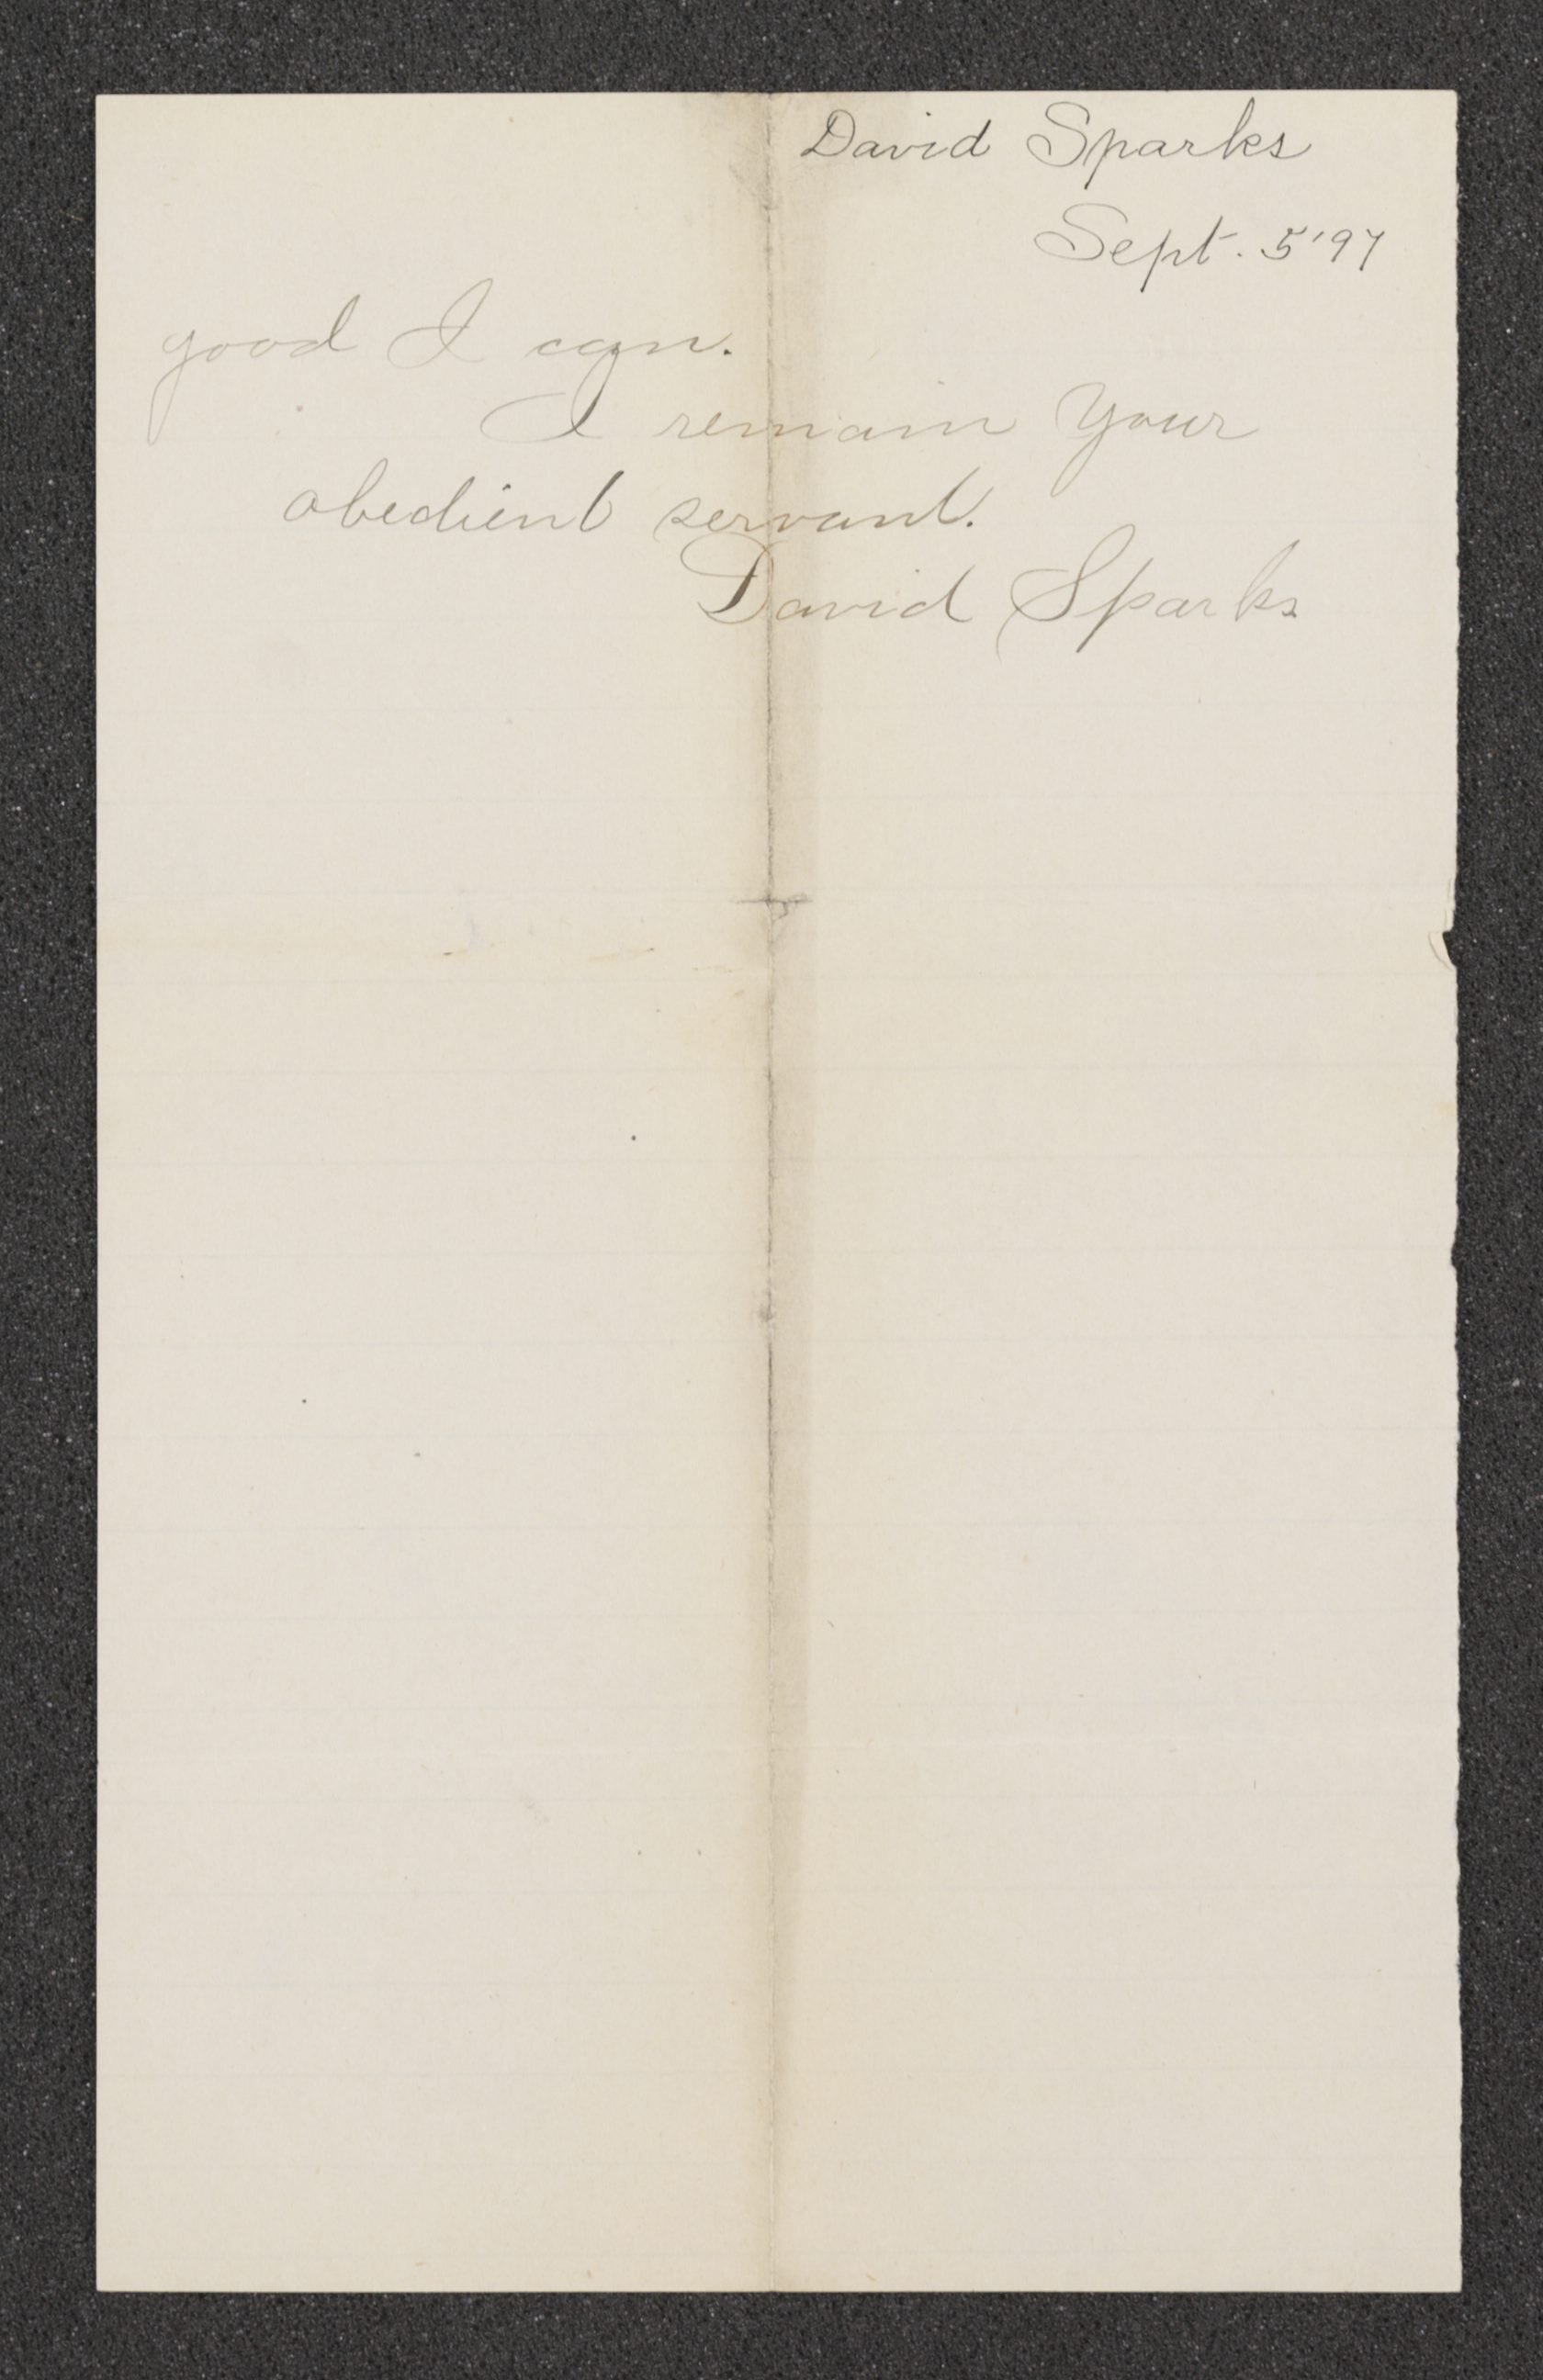 David Sparks
Sept. 5 '97
good I can.
I remain Your
obedient servant.
David Sparks